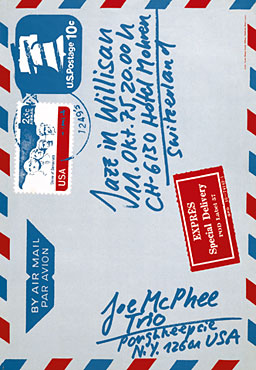 U.S.Postage 10c
USA
12495
Jazz in Willisau
Okt. 75 20.00h
CH-6130 Hotel Mohren
Switzerland
EXPRES
Special Delivery
POD Label 57
BY AIR MAIL
PAR AVION
Joe McPhee
Trio
Poughkeepsie
N.Y. 12601 USA